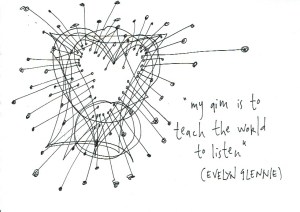 "my aim is to
teach the world
to listen"
(EVELYN GLENNIE)